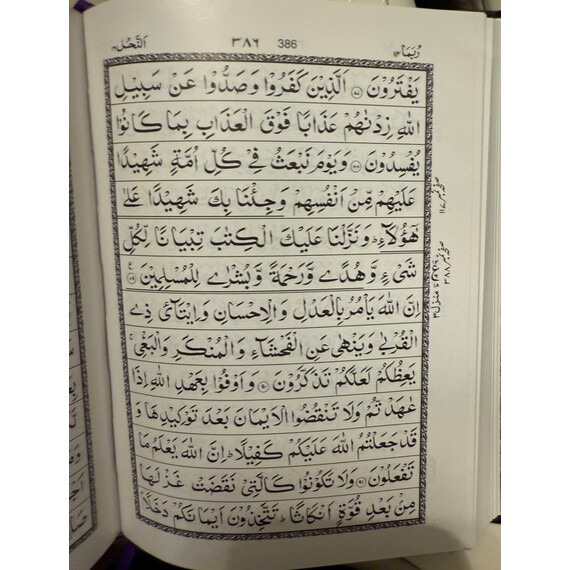 رُبَمَا ١٤ ٣٨٦ 386 اَلنَّحْل
يَفْتَرُوْنَ ۝۸۷ اَلَّذِيْنَ كَفَرُوْا وَصَدُّوْا عَنْ سَبِيْلِ
اللّٰهِ زِدْنٰهُمْ عَذَابًا فَوْقَ الْعَذَابِ بِمَا كَانُوْا
يُفْسِدُوْنَ ۝۸۸ وَيَوْمَ نَبْعَثُ فِيْ كُلِّ اُمَّةٍ شَهِيْدًا
عَلَيْهِمْ مِّنْ اَنْفُسِهِمْ وَجِئْنَا بِكَ شَهِيْدًا عَلٰى
هٰٓؤُلَآءِ ؕ وَنَزَّلْنَا عَلَيْكَ الْكِتٰبَ تِبْيَانًا لِّكُلِّ
شَيْءٍ وَّهُدًى وَّرَحْمَةً وَّبُشْرٰى لِلْمُسْلِمِيْنَ ۝۸۹
اِنَّ اللّٰهَ يَاْمُرُ بِالْعَدْلِ وَالْاِحْسَانِ وَاِيْتَآئِ ذِي
الْقُرْبٰى وَيَنْهٰى عَنِ الْفَحْشَآءِ وَالْمُنْكَرِ وَالْبَغْيِ ۚ
يَعِظُكُمْ لَعَلَّكُمْ تَذَكَّرُوْنَ ۝۹۰ وَاَوْفُوْا بِعَهْدِ اللّٰهِ اِذَا
عٰهَدْتُّمْ وَلَا تَنْقُضُوا الْاَيْمَانَ بَعْدَ تَوْكِيْدِهَا وَ
قَدْ جَعَلْتُمُ اللّٰهَ عَلَيْكُمْ كَفِيْلًا ؕ اِنَّ اللّٰهَ يَعْلَمُ مَا
تَفْعَلُوْنَ ۝۹۱ وَلَا تَكُوْنُوْا كَالَّتِيْ نَقَضَتْ غَزْلَهَا
مِنْۢ بَعْدِ قُوَّةٍ اَنْكَاثًا ؕ تَتَّخِذُوْنَ اَيْمَانَكُمْ دَخَلًاۢ